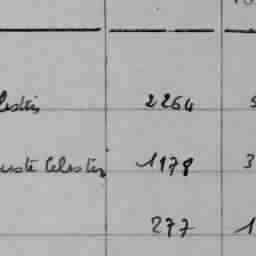 lestin 2264
uste Celestin 1178 3
277 1